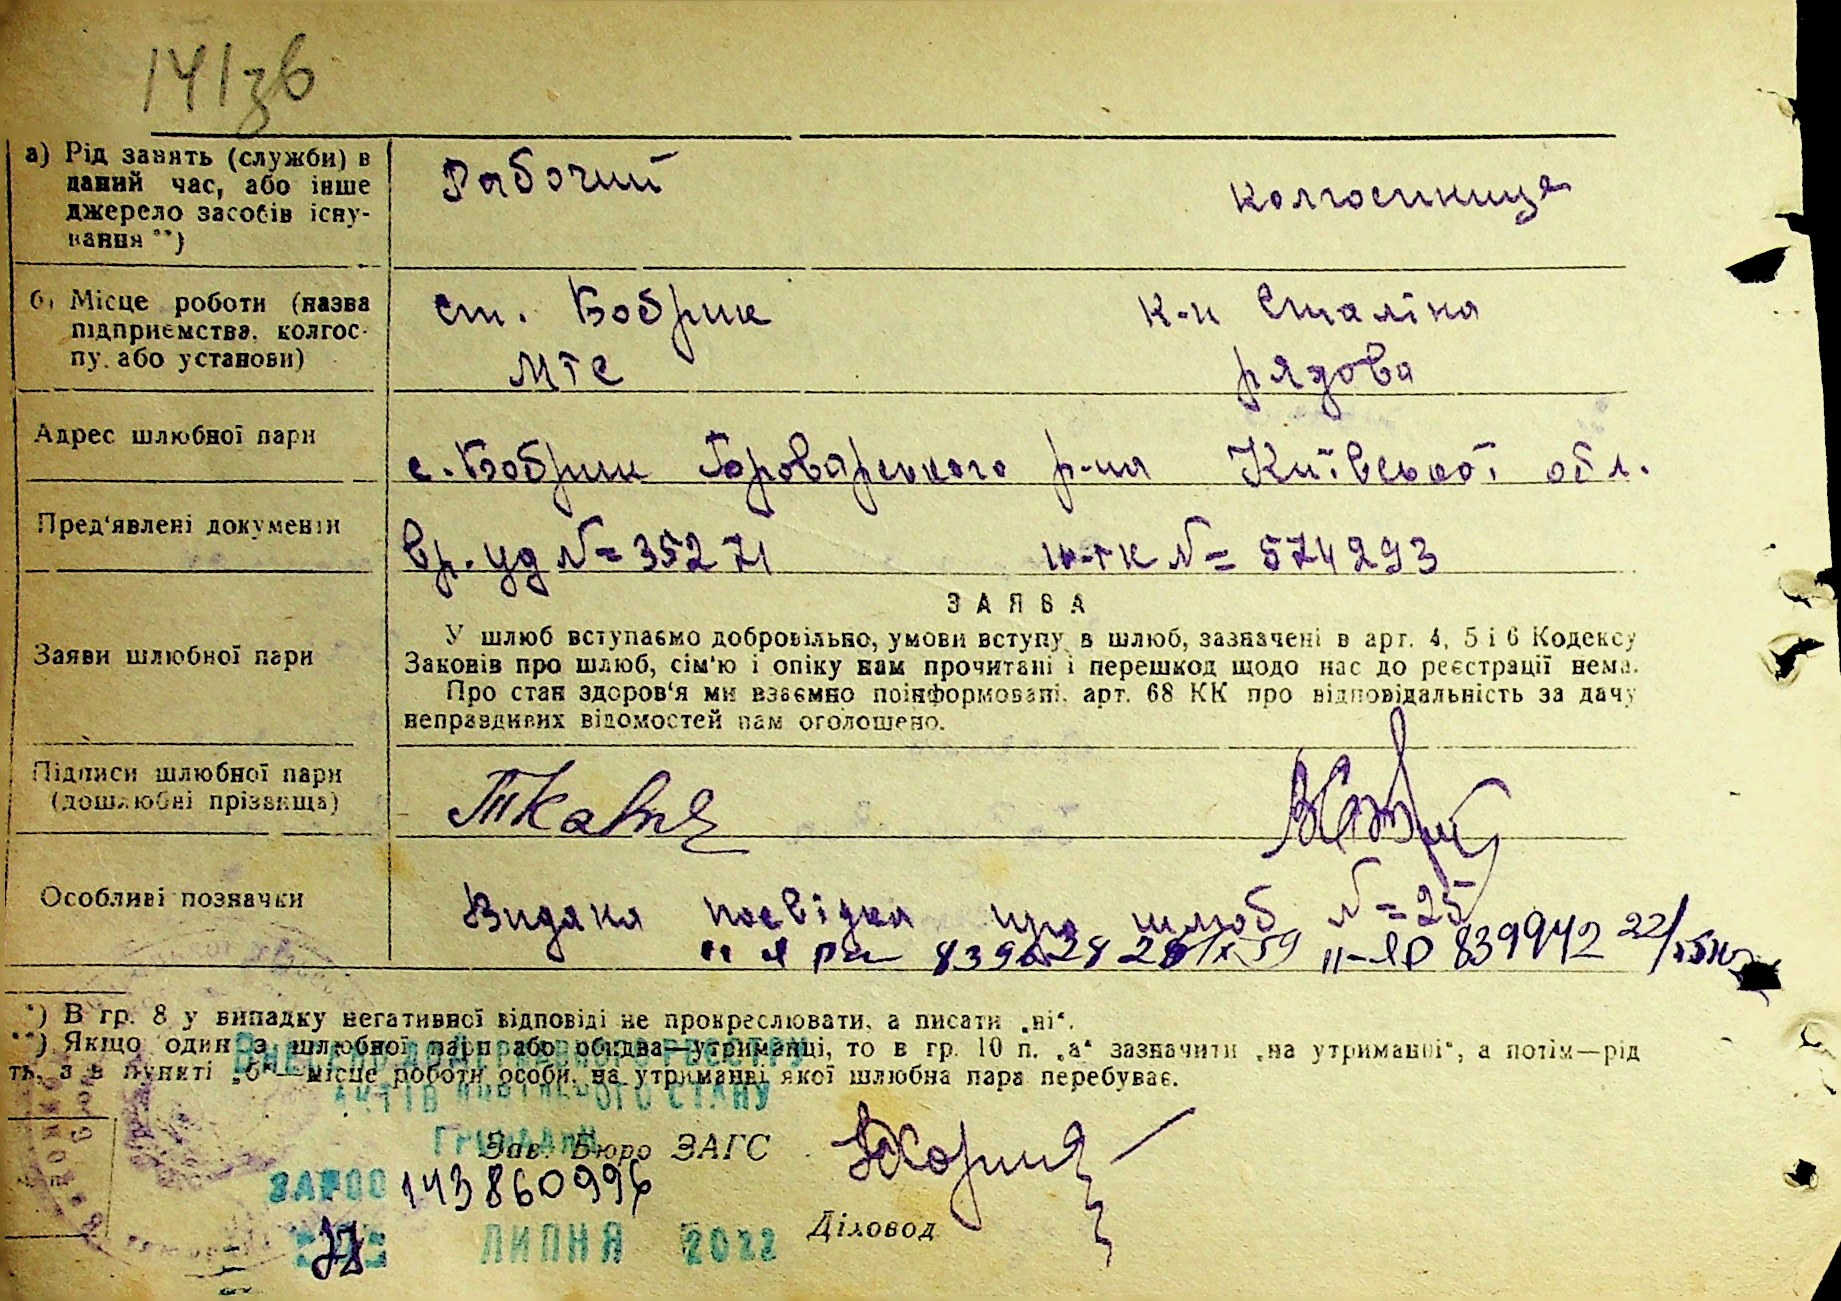 141зв
а) Рід занять (служби) в даний час, або інше джерело засобів існування **)
Рабочий
колгоспниця
б) Місце роботи (назва підприємства, колгоспу, або установи)
ст. Бобрик
МТС
к-п Сталіна
рядова
Адрес шлюбної пари
с. Бобрик Броварського р-на Київської обл.
Пред'явлені документи
вр. уд N= 35271
N= 574293
Заяви шлюбної пари
ЗАЯВА
У шлюб вступаємо добровільно, умови вступу в шлюб, зазначені в арт. 4, 5 і 6 Кодексу
Законів про шлюб, сім'ю і опіку нам прочитані і перешкод щодо нас до реєстрації нема.
Про стан здоров'я ми взаємно поінформовані. арт. 68 КК про відповідальність за дачу
неправдивих відомостей нам оголошено.
Підписи шлюбної пари
(дошлюбні прізвища)
Особливі позначки
Видана посвідка про шлюб N= 25
839942
*) В гр. 8 у випадку негативної відповіді не прокреслювати, а писати „ні“.
**) Якщо один з шлюбної пари або обидва—утриманці, то в гр. 10 п. „а“ зазначити „на утриманні“, а потім—рід
ть, а в пункті „б“—місце роботи особи, на утриманні якої шлюбна пара перебуває.
АКТІВ ЦИВІЛЬНОГО СТАНУ
ГРОМАДЯН
Зав. Бюро ЗАГС
ЗА №00 143860996
ЛИПНЯ 2022
Діловод